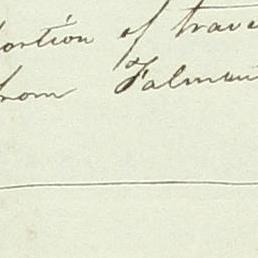 portion of trave
from Falmou